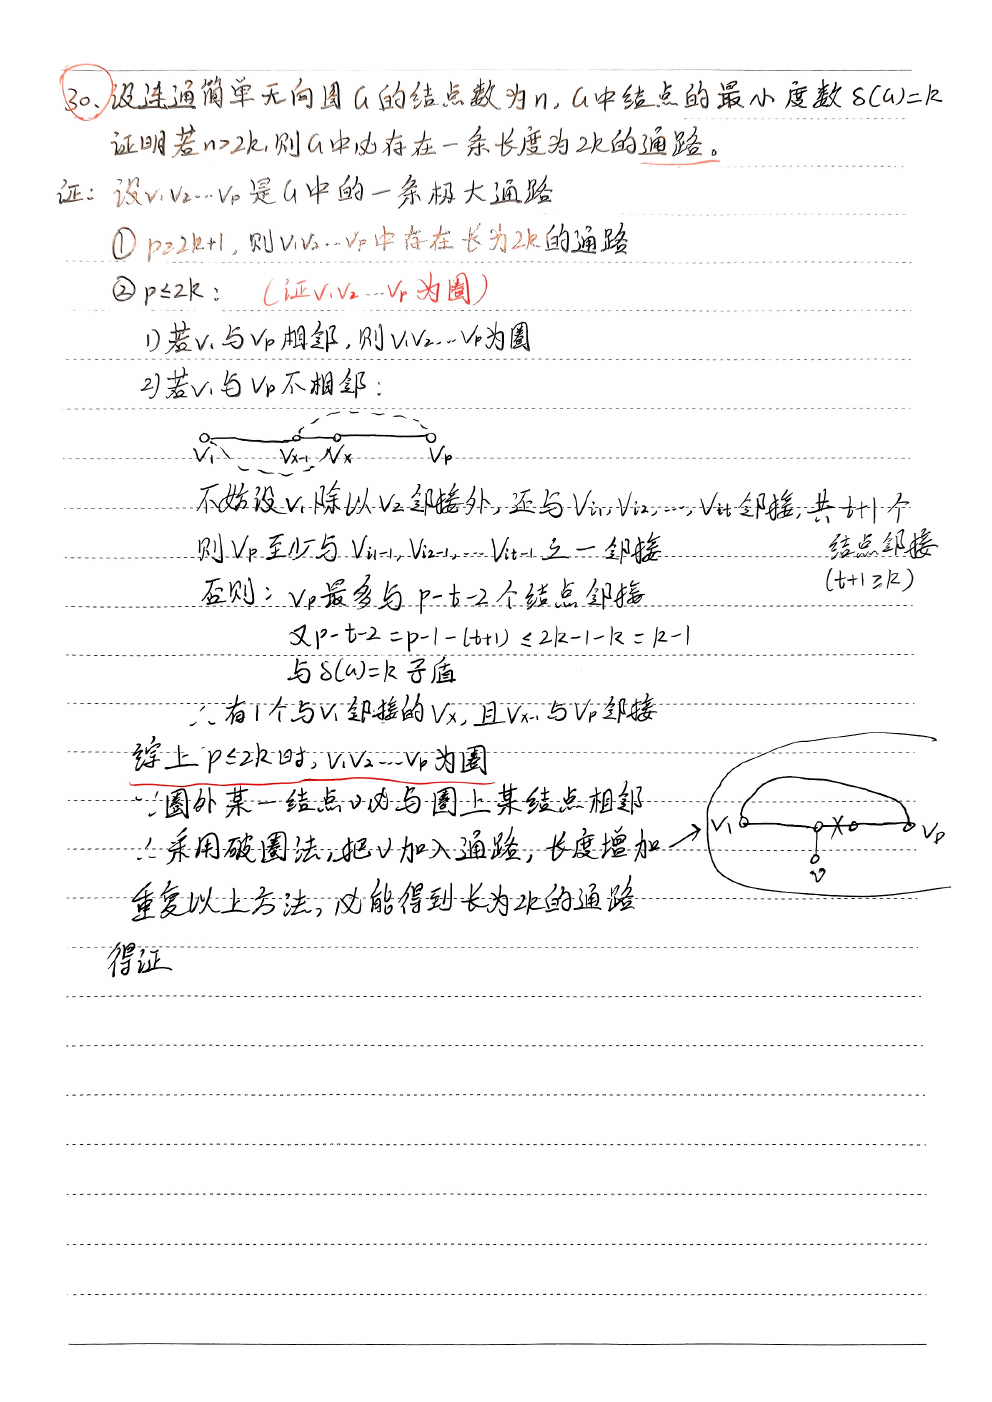 30、设连通简单无向图G的结点数为n,G中结点的最小度数δ(G)=k
证明若n>2k,则G中必存在一条长度为2k的通路。
证:设v1v2…vp是G中的一条极大通路
① p≥2k+1,则v1v2…vp中存在长为2k的通路
② p≤2k: (证v1v2…vp为圈)
1)若v1与vp相邻,则v1v2…vp为圈
2)若v1与vp不相邻:
v1 vx-1 vx vp
不妨设v1除以v2邻接外,还与vi1,vi2,…,vit邻接,共t+1个
结点邻接
(t+1≥k)
则vp至少与vi1-1,vi2-1,…vit-1之一邻接
否则:vp最多与p-t-2个结点邻接
又p-t-2=p-1-(t+1)≤2k-1-k=k-1
与δ(G)=k矛盾
∴有1个与v1邻接的vx,且vx-1与vp邻接
综上p≤2k时,v1v2…vp为圈
∵圈外某一结点v必与圈上某结点相邻
∴采用破圈法,把v加入通路,长度增加
v1 vp
v
重复以上方法,必能得到长为2k的通路
得证